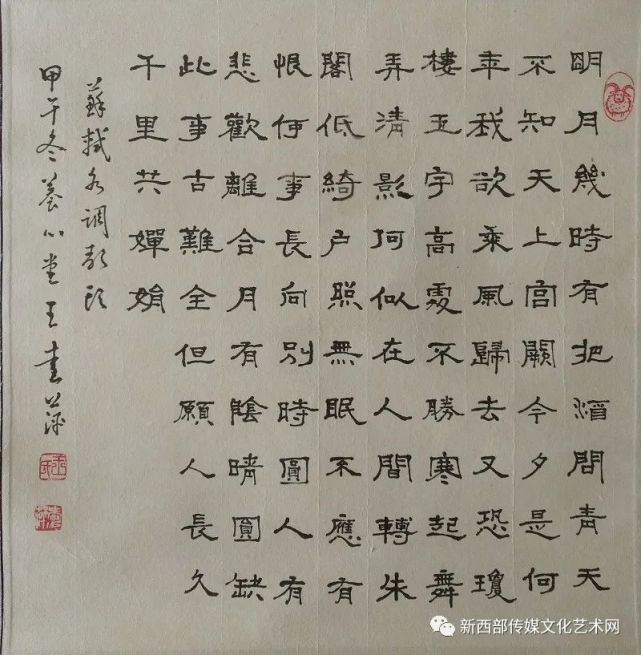 明月幾時有把酒問青天
不知天上宮闕今夕是何
年我欲乘風歸去又恐瓊
樓玉宇高處不勝寒起舞
弄清影何似在人間轉朱
閣低綺户照無眠不應有
恨何事長向別時圓人有
悲歡離合月有陰晴圓缺
此事古難全但願人長久
千里共嬋娟
蘇軾水调歌頭
甲午冬養心堂王萍
新西部传媒文化艺术网